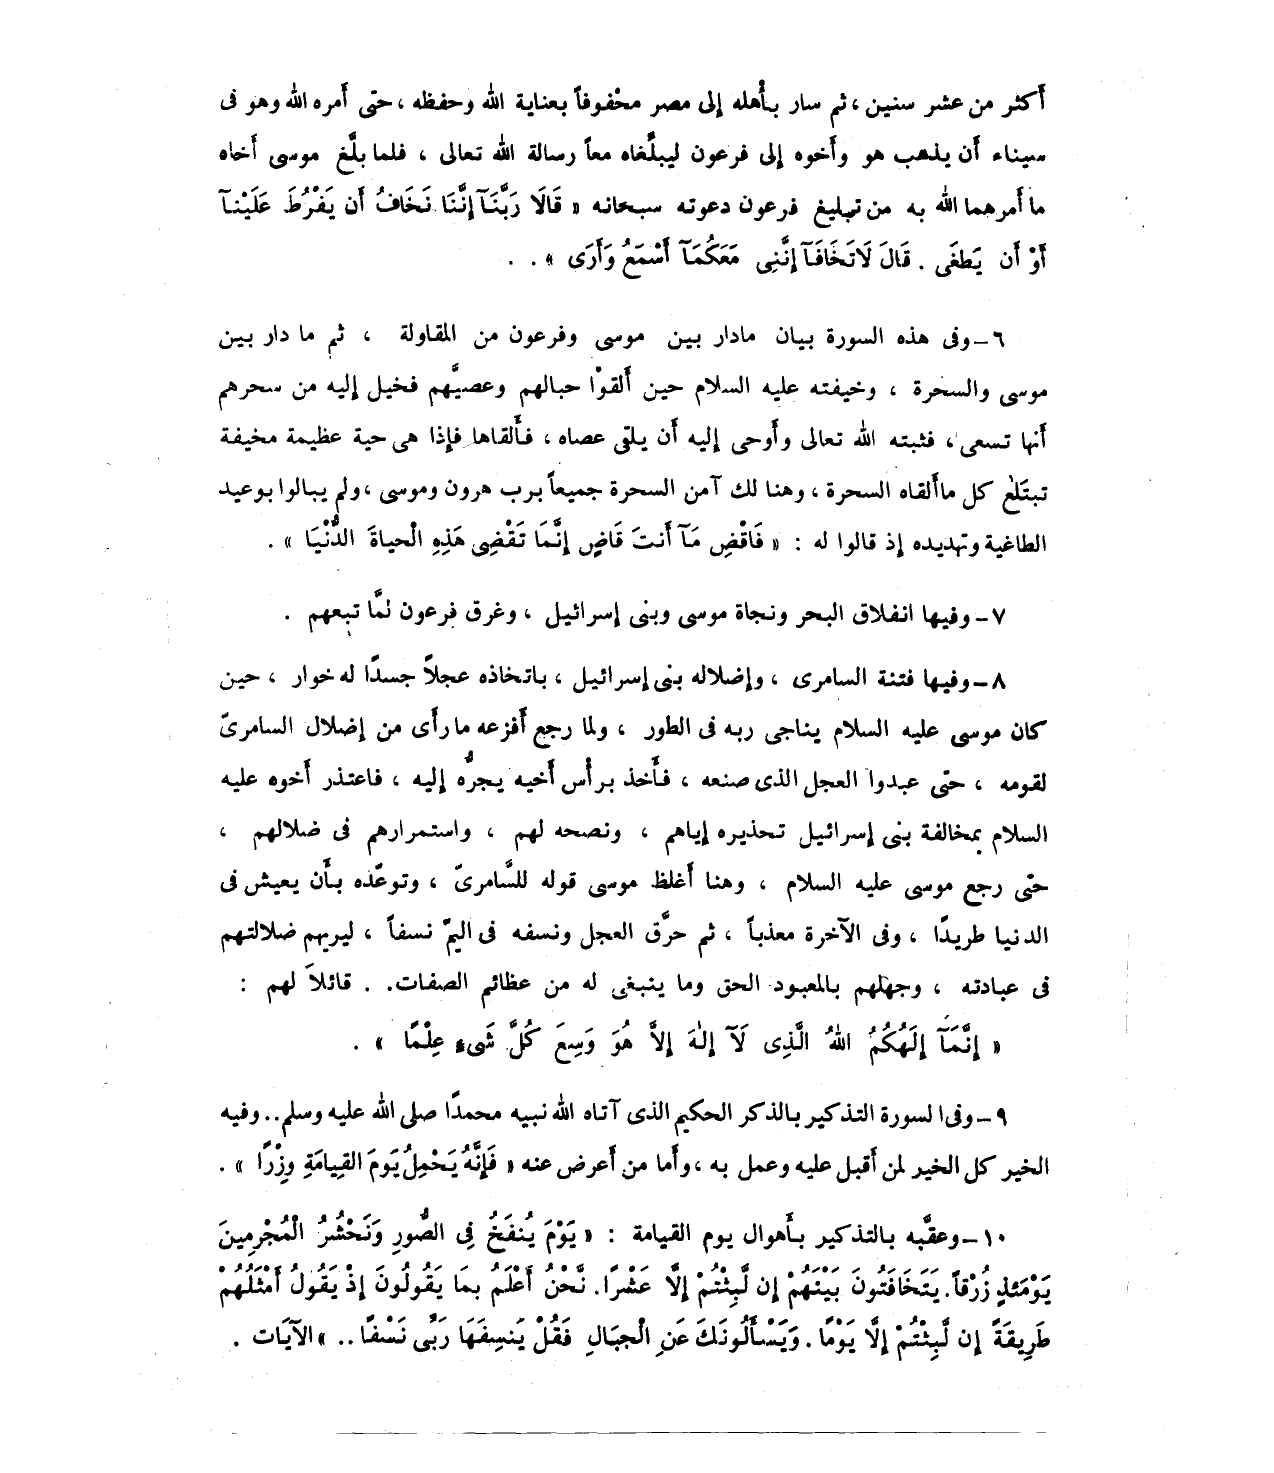 أَكثر من عشر سنين ، ثم سار بأْهله إلى مصر محْفوفاً بعناية الله وحفظه ، حتى أَمره الله وهو فى
سيناء أَن يذهب هو وأَخوه إلى فرعون ليبلِّغاه معاً رسالة الله تعالى ، فلما بلَّغ موسى أَخاه
ما أَمرهما الله به من تبليغ فرعون دعوته سبحانه « قَالَا رَبَّنَآ إِنَّنَا نَخَافُ أَن يَفْرُطَ عَلَيْنآ
أَوْ أَن يَطغَى . قَالَ لَاتَخَافَآ إِنَّنِى مَعَكُمَآ أَسْمَعُ وَأَرَى » . .
٦ـ وفى هذه السورة بيان مادار بين موسى وفرعون من المقاولة ، ثم ما دار بين
موسى والسحرة ، وخيفته عليه السلام حين أَلقوْا حبالهم وعصيَّهم فخيل إليه من سحرهم
أَنها تسعى ، فثبته الله تعالى وأَوحى إليه أَن يلقى عصاه ، فأَلقاها فإذا هى حية عظيمة مخيفة
تبتَلع كل ماأَلقاه السحرة ، وهنا لك آمن السحرة جميعاً برب هرون وموسى ، ولم يبالوا بوعيد
الطاغية وتهديده إذ قالوا له : « فَاقْضِ مَآ أَنتَ قَاضٍ إِنَّمَا تَقْضِى هَذِهِ الْحياةَ الدُّنْيَا » .
٧ـ وفيها انفلاق البحر ونجاة موسى وبنى إسرائيل ، وغرق فرعون لمَّا تبعهم .
٨ـ وفيها فتنة السامرى ، وإضلاله بنى إسرائيل ، باتخاذه عجلاً جسدًا له خوار ، حين
كان موسى عليه السلام يناجى ربه فى الطور ، ولما رجع أَفزعه ما رأَى من إضلال السامرىّ
لقومه ، حتى عبدوا العجل الذى صنعه ، فأَخذ برأْس أَخيه يجرُّه إليه ، فاعتذر أَخوه عليه
السلام بمخالفة بنى إسرائيل تحذيره إياهم ، ونصحه لهم ، واستمرارهم فى ضلالهم ،
حتى رجع موسى عليه السلام ، وهنا أَغلظ موسى قوله للسَّامرىّ ، وتوعّده بأَن يعيش فى
الدنيا طريدًا ، وفى الآخرة معذباً ، ثم حرَّق العجل ونسفه فى اليمّ نسفاً ، ليريهم ضلالتهم
فى عبادته ، وجهلهم بالمعبود الحق وما ينبغى له من عظائم الصفات. . قائلاً لهم :
« إِنَّمَآ إِلَهُكُمُ اللهُ الَّذِى لَآ إِلهَ إِلاَّ هُوَ وَسِعَ كُلَّ شَىءٍ عِلْمًا » .
٩ـ وفى السورة التذكير بالذكر الحكيم الذى آتاه الله نبيه محمدًا صلى الله عليه وسلم .. وفيه
الخير كل الخير لمن أَقبل عليه وعمل به ، وأَما من أَعرض عنه « فَإِنَّهُ يَحْمِلُ يَومَ القِيامَةِ وِزْرًا » .
١٠ـ وعقَّبه بالتذكير بأَهوال يوم القيامة : « يَوْمَ يُنفَخُ فِى الصُّورِ وَنَحْشُرُ الْمُجْرِمِينَ
يَوْمَئذٍ زُرْقاً . يَتَخَافَتُونَ بَيْنَهُمْ إِن لَّبِثْتُمْ إِلَّا عَشْرًا . نَّحْنُ أَعْلَمُ بمَا يَقُولُونَ إِذْ يَقُولُ أَمْثَلُهُمْ
طَرِيقَةً إِن لَّبِثْتُمْ إِلَّا يَوْمًا . وَيَسْأَلُونَكَ عَنِ الْجبَالِ فَقُلْ يَنسِفُهَا رَبِّى نَسْفًا .. » الآيَات .